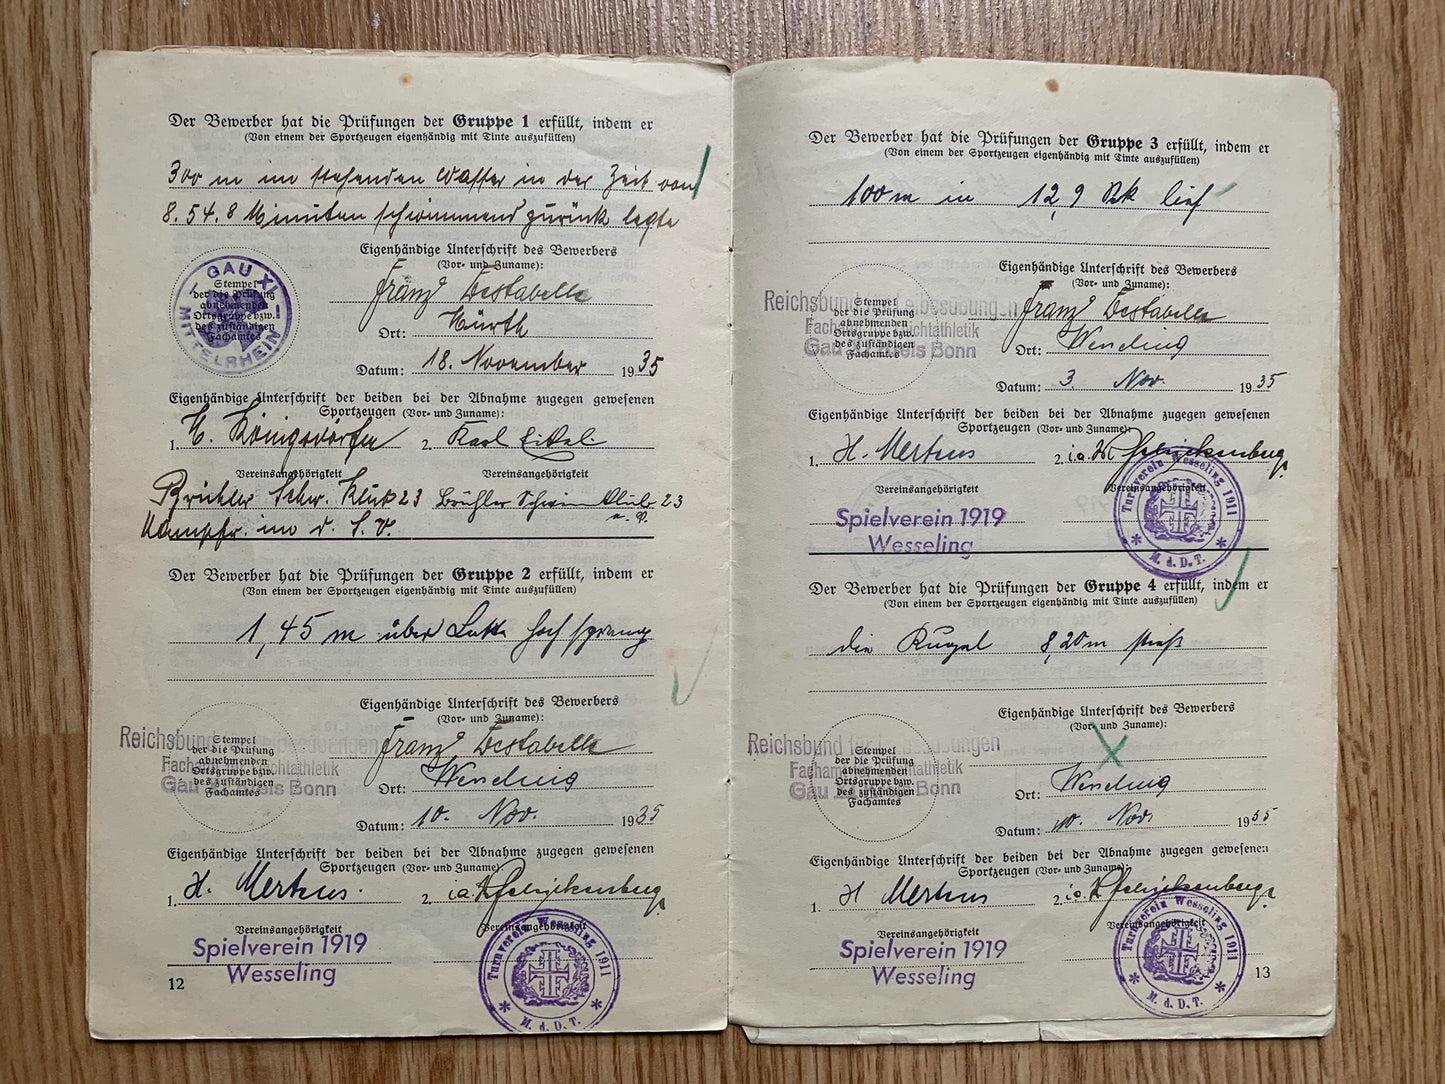 Der Bewerber hat die Prüfungen der Gruppe 1 erfüllt, indem er
(Von einem der Sportzeugen eigenhändig mit Tinte auszufüllen)
300 m im stehenden Wasser in der Zeit von
8.54.8 Minuten schwimmend zurück legte
Eigenhändige Unterschrift des Bewerbers
(Vor- und Zuname):
GAU XI
MITTELRHEIN
Stempel
der die Prüfung
abnehmenden
Ortsgruppe bzw.
des zuständigen
Fachamtes
Franz
Ort: Hürth
Datum: 18. November 1935
Eigenhändige Unterschrift der beiden bei der Abnahme zugegen gewesenen
Sportzeugen (Vor- und Zuname):
1. 2. Karl
Vereinsangehörigkeit Vereinsangehörigkeit
Schw. Klub 23 Brühler Schwimm Klub 23
Der Bewerber hat die Prüfungen der Gruppe 2 erfüllt, indem er
(Von einem der Sportzeugen eigenhändig mit Tinte auszufüllen)
1,45 m über Latte hoch sprang
Eigenhändige Unterschrift des Bewerbers
(Vor- und Zuname):
Reichsbund für Leibesübungen
Fachamt Leichtathletik
Gau Kreis Bonn
Stempel
der die Prüfung
abnehmenden
Ortsgruppe bzw.
des zuständigen
Fachamtes
Franz
Ort: Wesseling
Datum: 10. Nov. 1935
Eigenhändige Unterschrift der beiden bei der Abnahme zugegen gewesenen
Sportzeugen (Vor- und Zuname):
1. H. Mertens. 2. i.a.
Vereinsangehörigkeit Vereinsangehörigkeit
Spielverein 1919
Wesseling
Turnverein Wesseling 1911
M. d. D. T.
12
Der Bewerber hat die Prüfungen der Gruppe 3 erfüllt, indem er
(Von einem der Sportzeugen eigenhändig mit Tinte auszufüllen)
100 m in 12,9 Sek lief
Eigenhändige Unterschrift des Bewerbers
(Vor- und Zuname):
Reichsbund für Leibesübungen
Fachamt Leichtathletik
Gau Kreis Bonn
Stempel
der die Prüfung
abnehmenden
Ortsgruppe bzw.
des zuständigen
Fachamtes
Franz
Ort: Wesseling
Datum: 3 Nov. 1935
Eigenhändige Unterschrift der beiden bei der Abnahme zugegen gewesenen
Sportzeugen (Vor- und Zuname):
1. H. Mertens 2. i.a.
Vereinsangehörigkeit Vereinsangehörigkeit
Spielverein 1919
Wesseling
Turnverein Wesseling 1911
M. d. D. T.
Der Bewerber hat die Prüfungen der Gruppe 4 erfüllt, indem er
(Von einem der Sportzeugen eigenhändig mit Tinte auszufüllen)
die Kugel 8,20 m stieß
Eigenhändige Unterschrift des Bewerbers
(Vor- und Zuname):
Reichsbund für Leibesübungen
Fachamt Leichtathletik
Gau Kreis Bonn
Stempel
der die Prüfung
abnehmenden
Ortsgruppe bzw.
des zuständigen
Fachamtes
Ort: Wesseling
Datum: 10. Nov. 1935
Eigenhändige Unterschrift der beiden bei der Abnahme zugegen gewesenen
Sportzeugen (Vor- und Zuname):
1. H Mertens 2. i.a.
Vereinsangehörigkeit Vereinsangehörigkeit
Spielverein 1919
Wesseling
Turnverein Wesseling 1911
M. d. D. T.
13